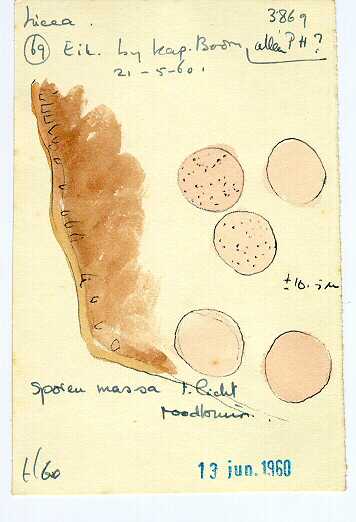 Licea.
3869
69 Eik. by kap. Boom, allen PH?
21-5-60.
± 10.5 µ
Sporen massa t. licht
roodbruin..
t/60
13 jun. 1960